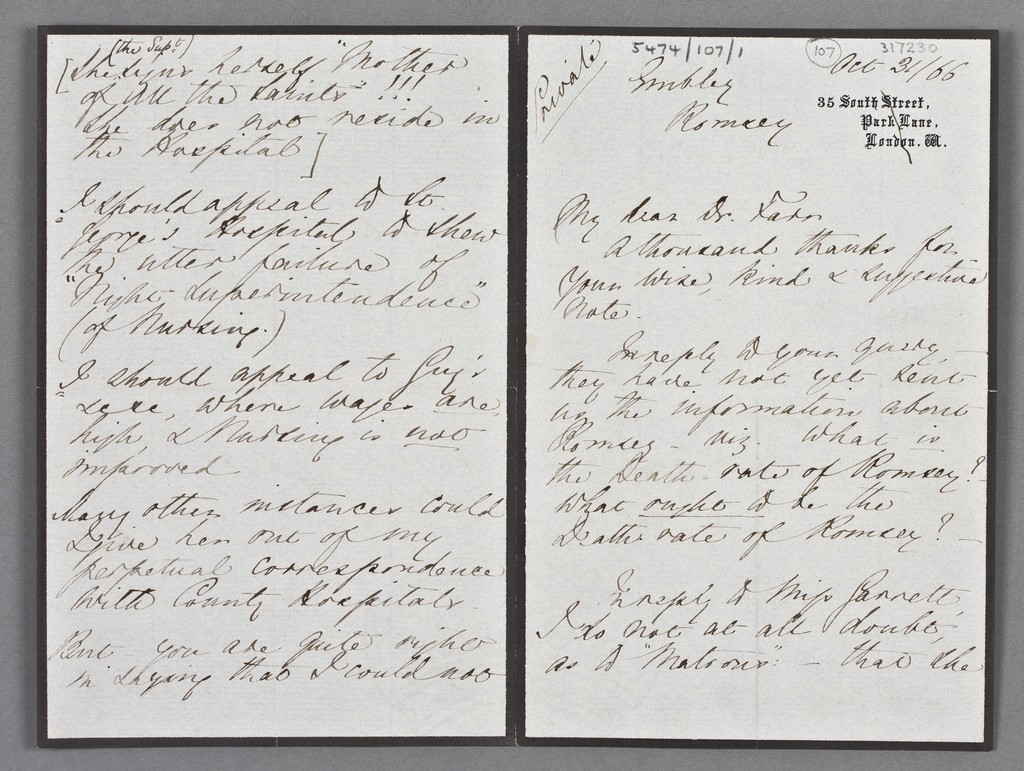 5474/107/1
107
317230
Private
Embley
Romsey
Oct 31/66
35 South Street,
Park Lane,
London. W.
My dear Dr. Farr
A thousand thanks for
your wise, kind & suggestive
note.
In reply to your query,
they have not yet sent
us the information about
Romsey - viz. what is
the Death-rate of Romsey?
What ought to be the
Death-rate of Romsey? -
In reply to Miss Garrett,
I do not at all doubt,
as to "Matrons": - that she
(the Supt)
[She signs herself "Mother
of all the Saints" !!!
She does not reside in
the Hospital]
I should appeal to St.
George's Hospital, to shew
the utter failure of
"Night Superintendence"
(of Nursing.)
I should appeal to Guy's
where wages are
high, & Nursing is not
improved
Many other instances could
I give her out of my
perpetual correspondence
with County Hospitals.
But - you are quite right
in saying that I could not